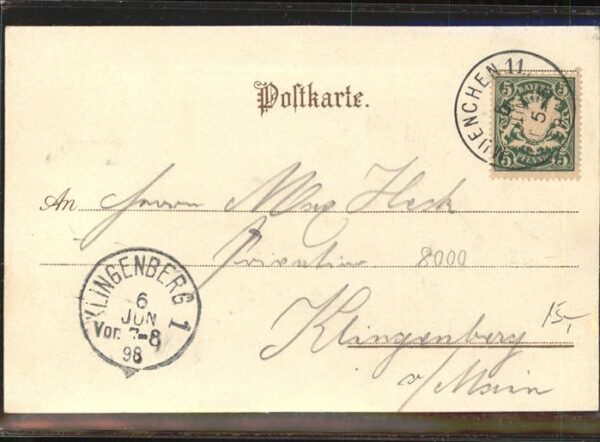 Postkarte.
MUENCHEN 11.
5 JUN
5 BAYERN 5
5 PFENNIG 5
An Herrn Max Heck
Privatier 8000
Klingenberg 15,-
a/Main
KLINGENBERG 1
6
JUN
Vor. 7-8
98